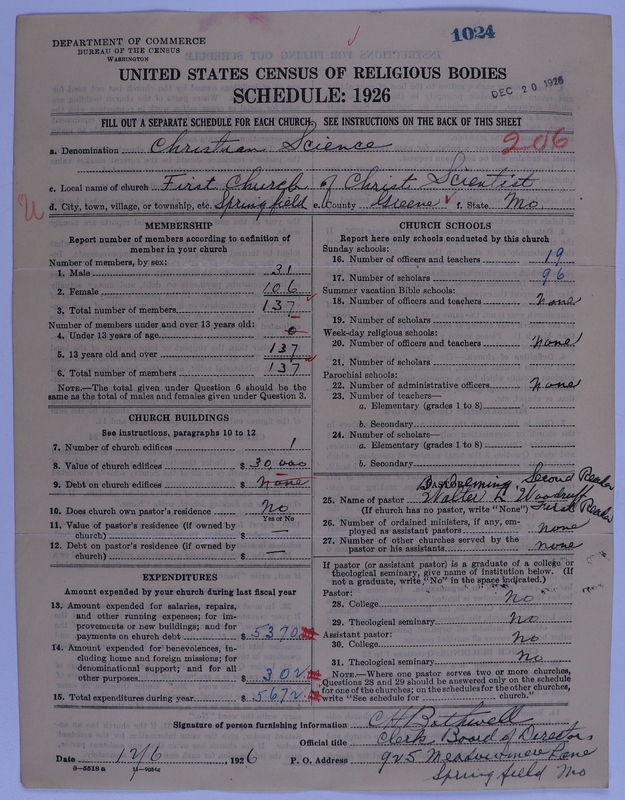 1024
DEPARTMENT OF COMMERCE
BUREAU OF THE CENSUS
WASHINGTON
UNITED STATES CENSUS OF RELIGIOUS BODIES
SCHEDULE: 1926
DEC 20 1926
FILL OUT A SEPARATE SCHEDULE FOR EACH CHURCH. SEE INSTRUCTIONS ON THE BACK OF THIS SHEET
a. Denomination Christian Science
206
c. Local name of church First Church of Christ Scientist
d. City, town, village, or township, etc. Springfield e. County Greene f. State Mo.
MEMBERSHIP
Report number of members according to definition of
member in your church
Number of members, by sex:
1. Male 31
2. Female 106
3. Total number of members 137
Number of members under and over 13 years old:
4. Under 13 years of age 0
5. 13 years old and over 137
6. Total number of members 137
NOTE.—The total given under Question 6 should be the
same as the total of males and females given under Question 3.
CHURCH BUILDINGS
See instructions, paragraphs 10 to 12
7. Number of church edifices 1
8. Value of church edifices $ 30,000
9. Debt on church edifices $ None
10. Does church own pastor's residence? No
Yes or No
11. Value of pastor's residence (if owned by
church) $ —
12. Debt on pastor's residence (if owned by
church) $ —
EXPENDITURES
Amount expended by your church during last fiscal year
13. Amount expended for salaries, repairs,
and other running expenses; for im-
provements or new buildings; and for
payments on church debt $ 5370
14. Amount expended for benevolences, in-
cluding home and foreign missions; for
denominational support; and for all
other purposes $ 302
15. Total expenditures during year $ 5672
CHURCH SCHOOLS
Report here only schools conducted by this church
Sunday schools:
16. Number of officers and teachers 19
17. Number of scholars 96
Summer vacation Bible schools:
18. Number of officers and teachers None
19. Number of scholars
Week-day religious schools:
20. Number of officers and teachers None
21. Number of scholars
Parochial schools:
22. Number of administrative officers None
23. Number of teachers—
a. Elementary (grades 1 to 8)
b. Secondary
24. Number of scholars—
a. Elementary (grades 1 to 8)
b. Secondary
Second Reader
25. Name of pastor Walter L Woodruff
(If church has no pastor, write "None") First Reader
26. Number of ordained ministers, if any, em-
ployed as assistant pastors None
27. Number of other churches served by the
pastor or his assistants None
If pastor (or assistant pastor) is a graduate of a college or
theological seminary, give name of institution below. (If
not a graduate, write "No" in the space indicated.)
Pastor:
28. College No
29. Theological seminary No
Assistant pastor:
30. College No
31. Theological seminary No
NOTE.—Where one pastor serves two or more churches,
Questions 28 and 29 should be answered only on the schedule
for one of the churches; on the schedules for the other churches,
write "See schedule for church."
Signature of person furnishing information C H Bothwell
Official title Clerk Board of Directors
Date 12/6, 1926 P. O. Address 925 Meadowmere Place
Springfield Mo